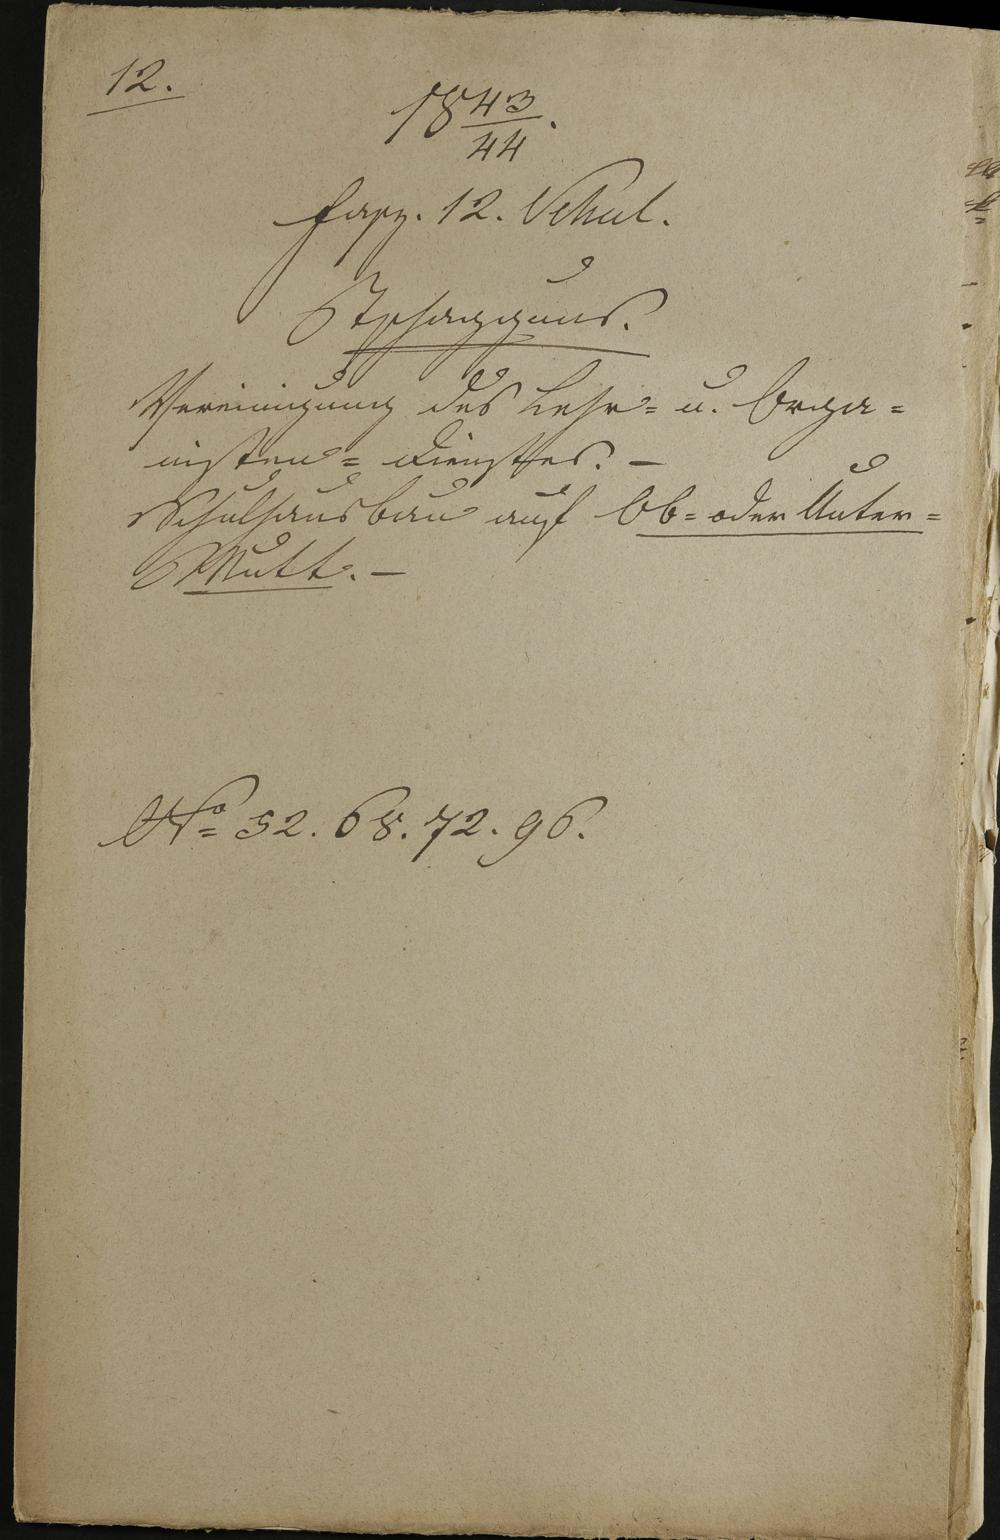 12.
18 43/44.
Fasz. 12. Schul.
Tschagguns.
Vereinigung des Lehr= u. Orga=
nisten= Dienstes. –
Schulhausbau auf Ob= oder Unter=
Mutt. –
No 52. 68. 72. 96.